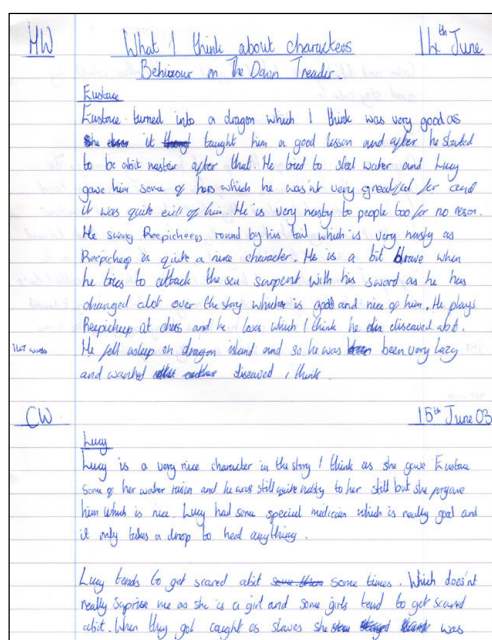 HW What I think about characters 14th June
Behiavour on The Dawn Treader.
Eustace
Eustace turned into a dragon which I think was very good as
it taught him a good lesson and after he started
to be abit nastier after that. He tried to steel water and Lucy
gave him some of hers which he was'nt very greatfied for and
it was quite evil of him. He is very nasty to people too for no reson.
He swing Reepicheep round by his tail which is very nasty as
Reepicheep is quite a nice character. He is a bit brave when
he tries to attack the sea surpent with his sword as he has
changed alot over the story which is good and nice of him. He plays
Reepicheep at chess and he loses which I think he diseaved abt.
He fell asleep on dragon island and so he was been very lazy
and diseaved, i think.
CW 15th June 03
Lucy
Lucy is a very nice character in the story I think as she gave Eustace
some of her water raison and he was still quite nasty to her still but she forgave
him which is nice. Lucy had some special medicien which is really good and
it only takes a drop to heal anything.
Lucy tends to get scared abit some times. Which does'nt
really suprise me as she is a girl and some girls tend to get scared
abit. When they got caught as slaves she was